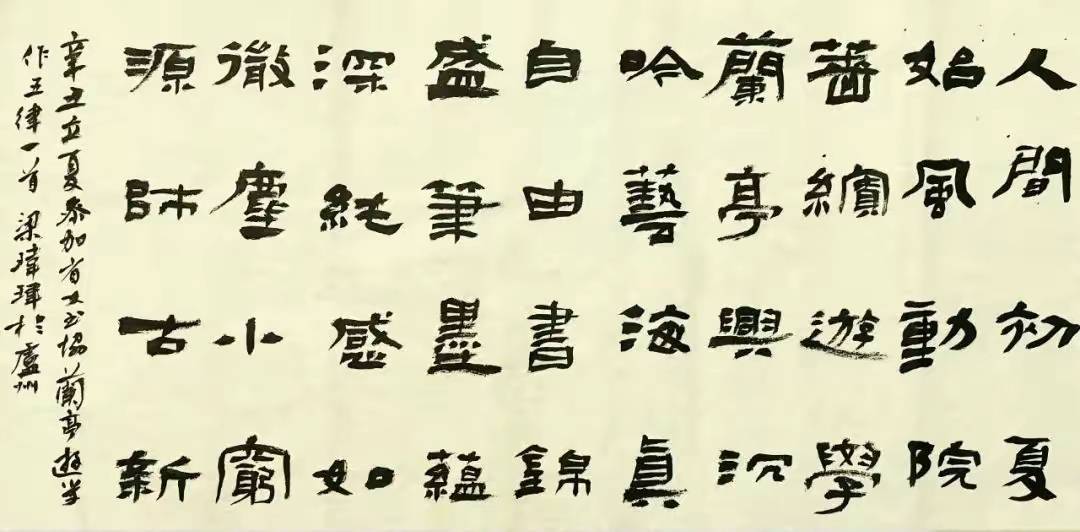 人間初夏
始風動院
薔繽遊學
蘭亭興沉
吟藝海眞
自由書錦
盛筆墨蘊
深純感如
徹塵小窮
源師古新
辛丑立夏參加省女书協蘭亭遊学
作五律一首 梁瑋琿於廬州